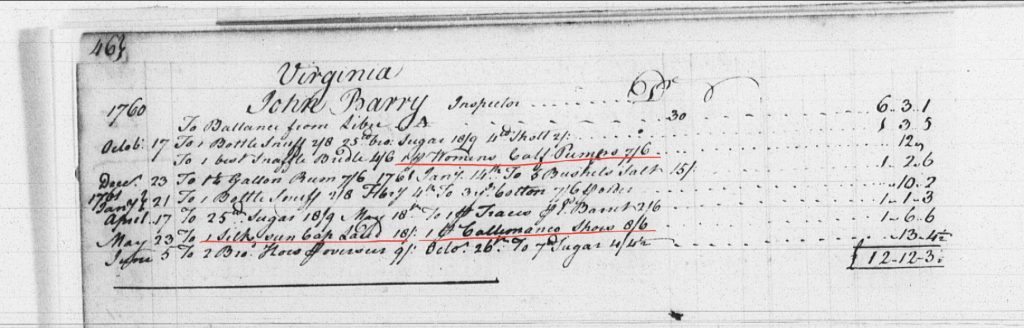 46
Virginia
1760 John Barry Inspector Dr
To Ballance from Liber A 30 6 . 3 . 1
Octob. 17 To 1 Bottle Snuff 2/8 25 lb bro. Sugar 18/9 4 d Shott 2/. 1 3 5
To 1 best Snaffle Bridle 4/6 1 pr Womens Calf Pumps 7/6 12
Decr. 23 To 1½ Gallon Rum 7/6 1761 Jany. 14th To 3 Bushels Salt 15/ 1 . 2 . 6
1761 Jany 21 To 1 Bottle Snuff 2/8 Feby 4th To 3 Cotton 7/6 10 . 2
April 17 To 25 Sugar 18/9 May 18th To 1 pr Traces 2/6 1 . 1 . 3
May 23 To 1 Silk Cap 18/. 1 pr Callimanco Shoes 8/6 1 . 6 . 6
June 5 To 2 Bro. Hows overseer 9/. Octor. 26th To 7 lb Sugar 4/4½ 13 . 4½
£ 12 . 12 . 3